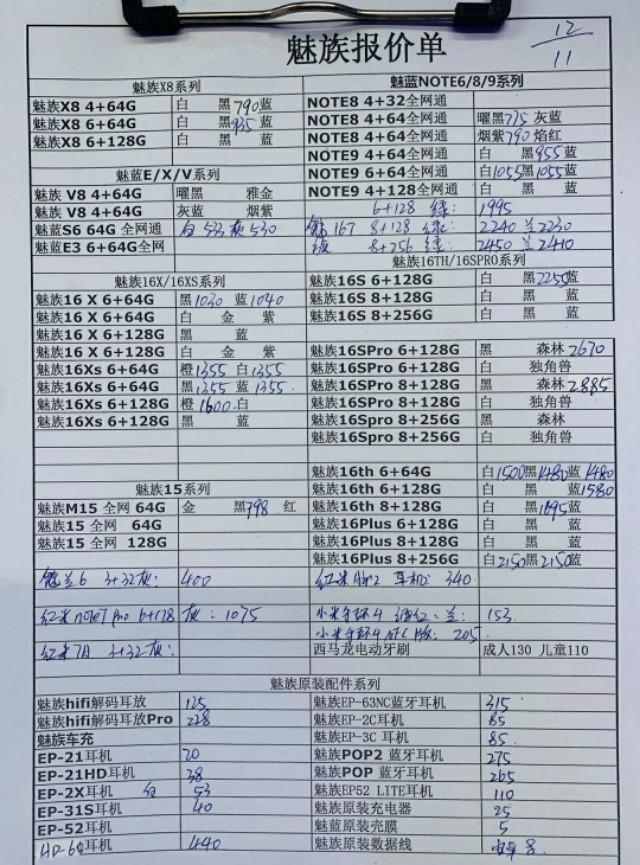 魅族报价单
12
11
魅族X8系列
魅族X8 4+64G 白 黑790蓝
魅族X8 6+64G 白 黑935蓝
魅族X8 6+128G 白 黑 蓝
魅蓝E/X/V系列
魅族 V8 4+64G 曜黑 雅金
魅族 V8 4+64G 灰蓝 烟紫
魅蓝S6 64G 全网通 白 533 灰 530
魅蓝E3 6+64G全网
魅族16X/16XS系列
魅族16 X 6+64G 黑1030 蓝1040
魅族16 X 6+64G 白 金 紫
魅族16 X 6+128G 黑 蓝
魅族16 X 6+128G 白 金 紫
魅族16Xs 6+64G 橙1355 白1355
魅族16Xs 6+64G 黑1355 蓝1355.
魅族16Xs 6+128G 橙1600.白
魅族16Xs 6+128G 黑 蓝
魅族15系列
魅族M15 全网 64G 金 黑798 红
魅族15 全网 64G
魅族15 全网 128G
魅兰6 3+32灰: 400
红米note7 pro 6+128 灰: 1075
红米7A 3+32灰:
魅蓝NOTE6/8/9系列
NOTE8 4+32全网通
NOTE8 4+64全网通 曜黑775 灰蓝
NOTE8 4+64全网通 烟紫790 焰红
NOTE9 4+64全网通 白 黑955蓝
NOTE9 6+64全网通 白1055黑1055蓝
NOTE9 4+128全网通 白 黑 蓝
6+128 绿: 1995
魅16T 8+128 绿: 2240 兰2230
8+256 绿: 2450 兰2410
魅族16TH/16SPRO系列
魅族16S 6+128G 白 黑2250蓝
魅族16S 8+128G 白 黑 蓝
魅族16S 8+256G 白 黑 蓝
魅族16SPro 6+128G 黑 森林2670
魅族16SPro 6+128G 白 独角兽
魅族16SPro 8+128G 黑 森林2885
魅族16SPro 8+128G 白 独角兽
魅族16Spro 8+256G 黑 森林
魅族16Spro 8+256G 白 独角兽
魅族16th 6+64G 白1500黑1480蓝1480
魅族16th 6+128G 白 黑 蓝1580
魅族16th 8+128G 白 黑1695蓝
魅族16Plus 6+128G 白 黑 蓝
魅族16Plus 8+128G 白 黑 蓝
魅族16Plus 8+256G 白2150黑2150蓝
红米 耳机: 340
小米手环4 兰: 153
小米手环4 NFC版: 205
西马龙电动牙刷 成人130 儿童110
魅族原装配件系列
魅族hifi解码耳放 125
魅族hifi解码耳放Pro 228
魅族车充
EP-21耳机 20
EP-21HD耳机 38
EP-2X耳机 白 53
EP-31S耳机 40
EP-52耳机
HD-60耳机 440
魅族EP-63NC蓝牙耳机 315
魅族EP-2C耳机 65
魅族EP-3C 耳机 85.
魅族POP2 蓝牙耳机 275
魅族POP 蓝牙耳机 265
魅族EP52 LITE耳机 110
魅族原装充电器 25
魅蓝原装壳膜 5
魅族原装数据线